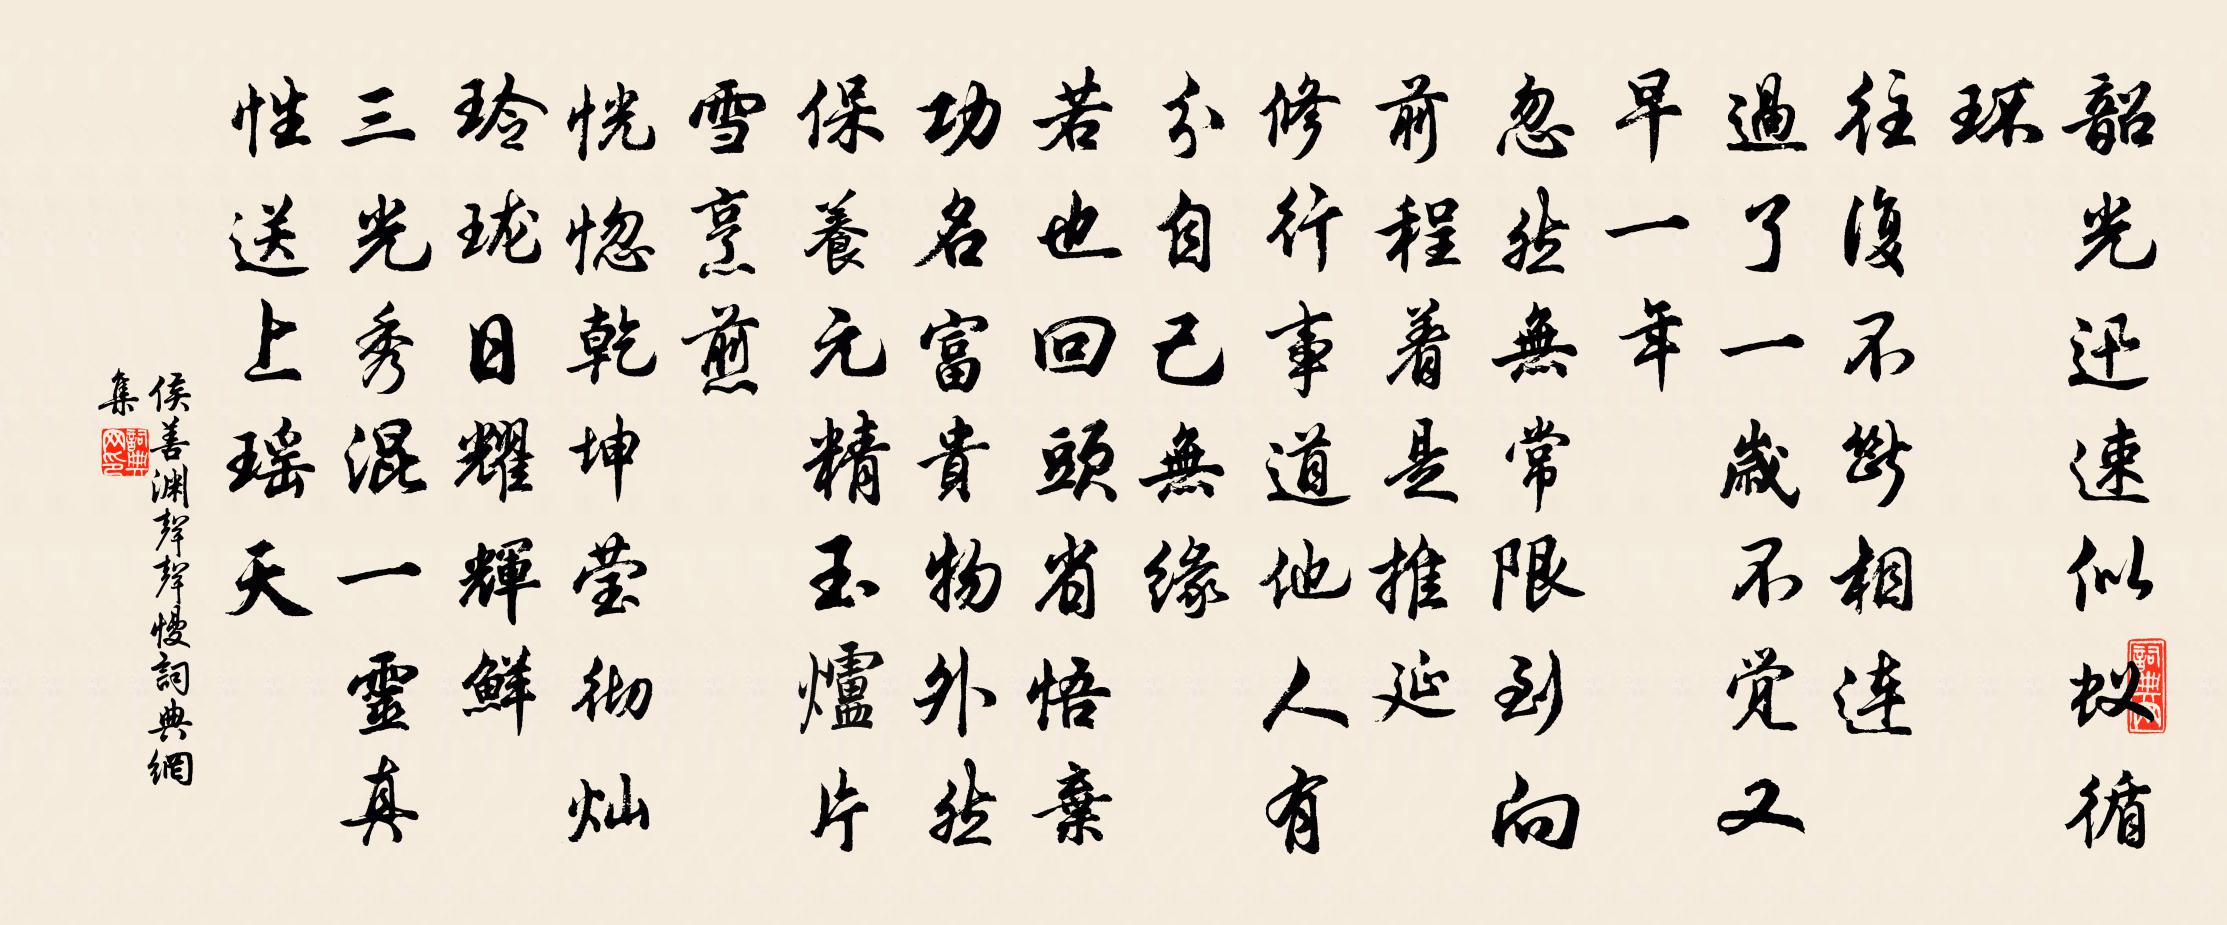 韶光迅速似蚁循
环
往復不斷相連
過了一歲不觉又
早一年
忽然無常限到向
前程着是推延
修行事道他人有
分自己無緣
若也回頭省悟棄
功名富貴物外然
保養元精玉爐片
雪烹煎
恍惚乾坤莹彻灿
玲珑日耀輝鮮
三光秀混一靈真
性送上瑶天
侯善渊聲聲慢詞典網
集